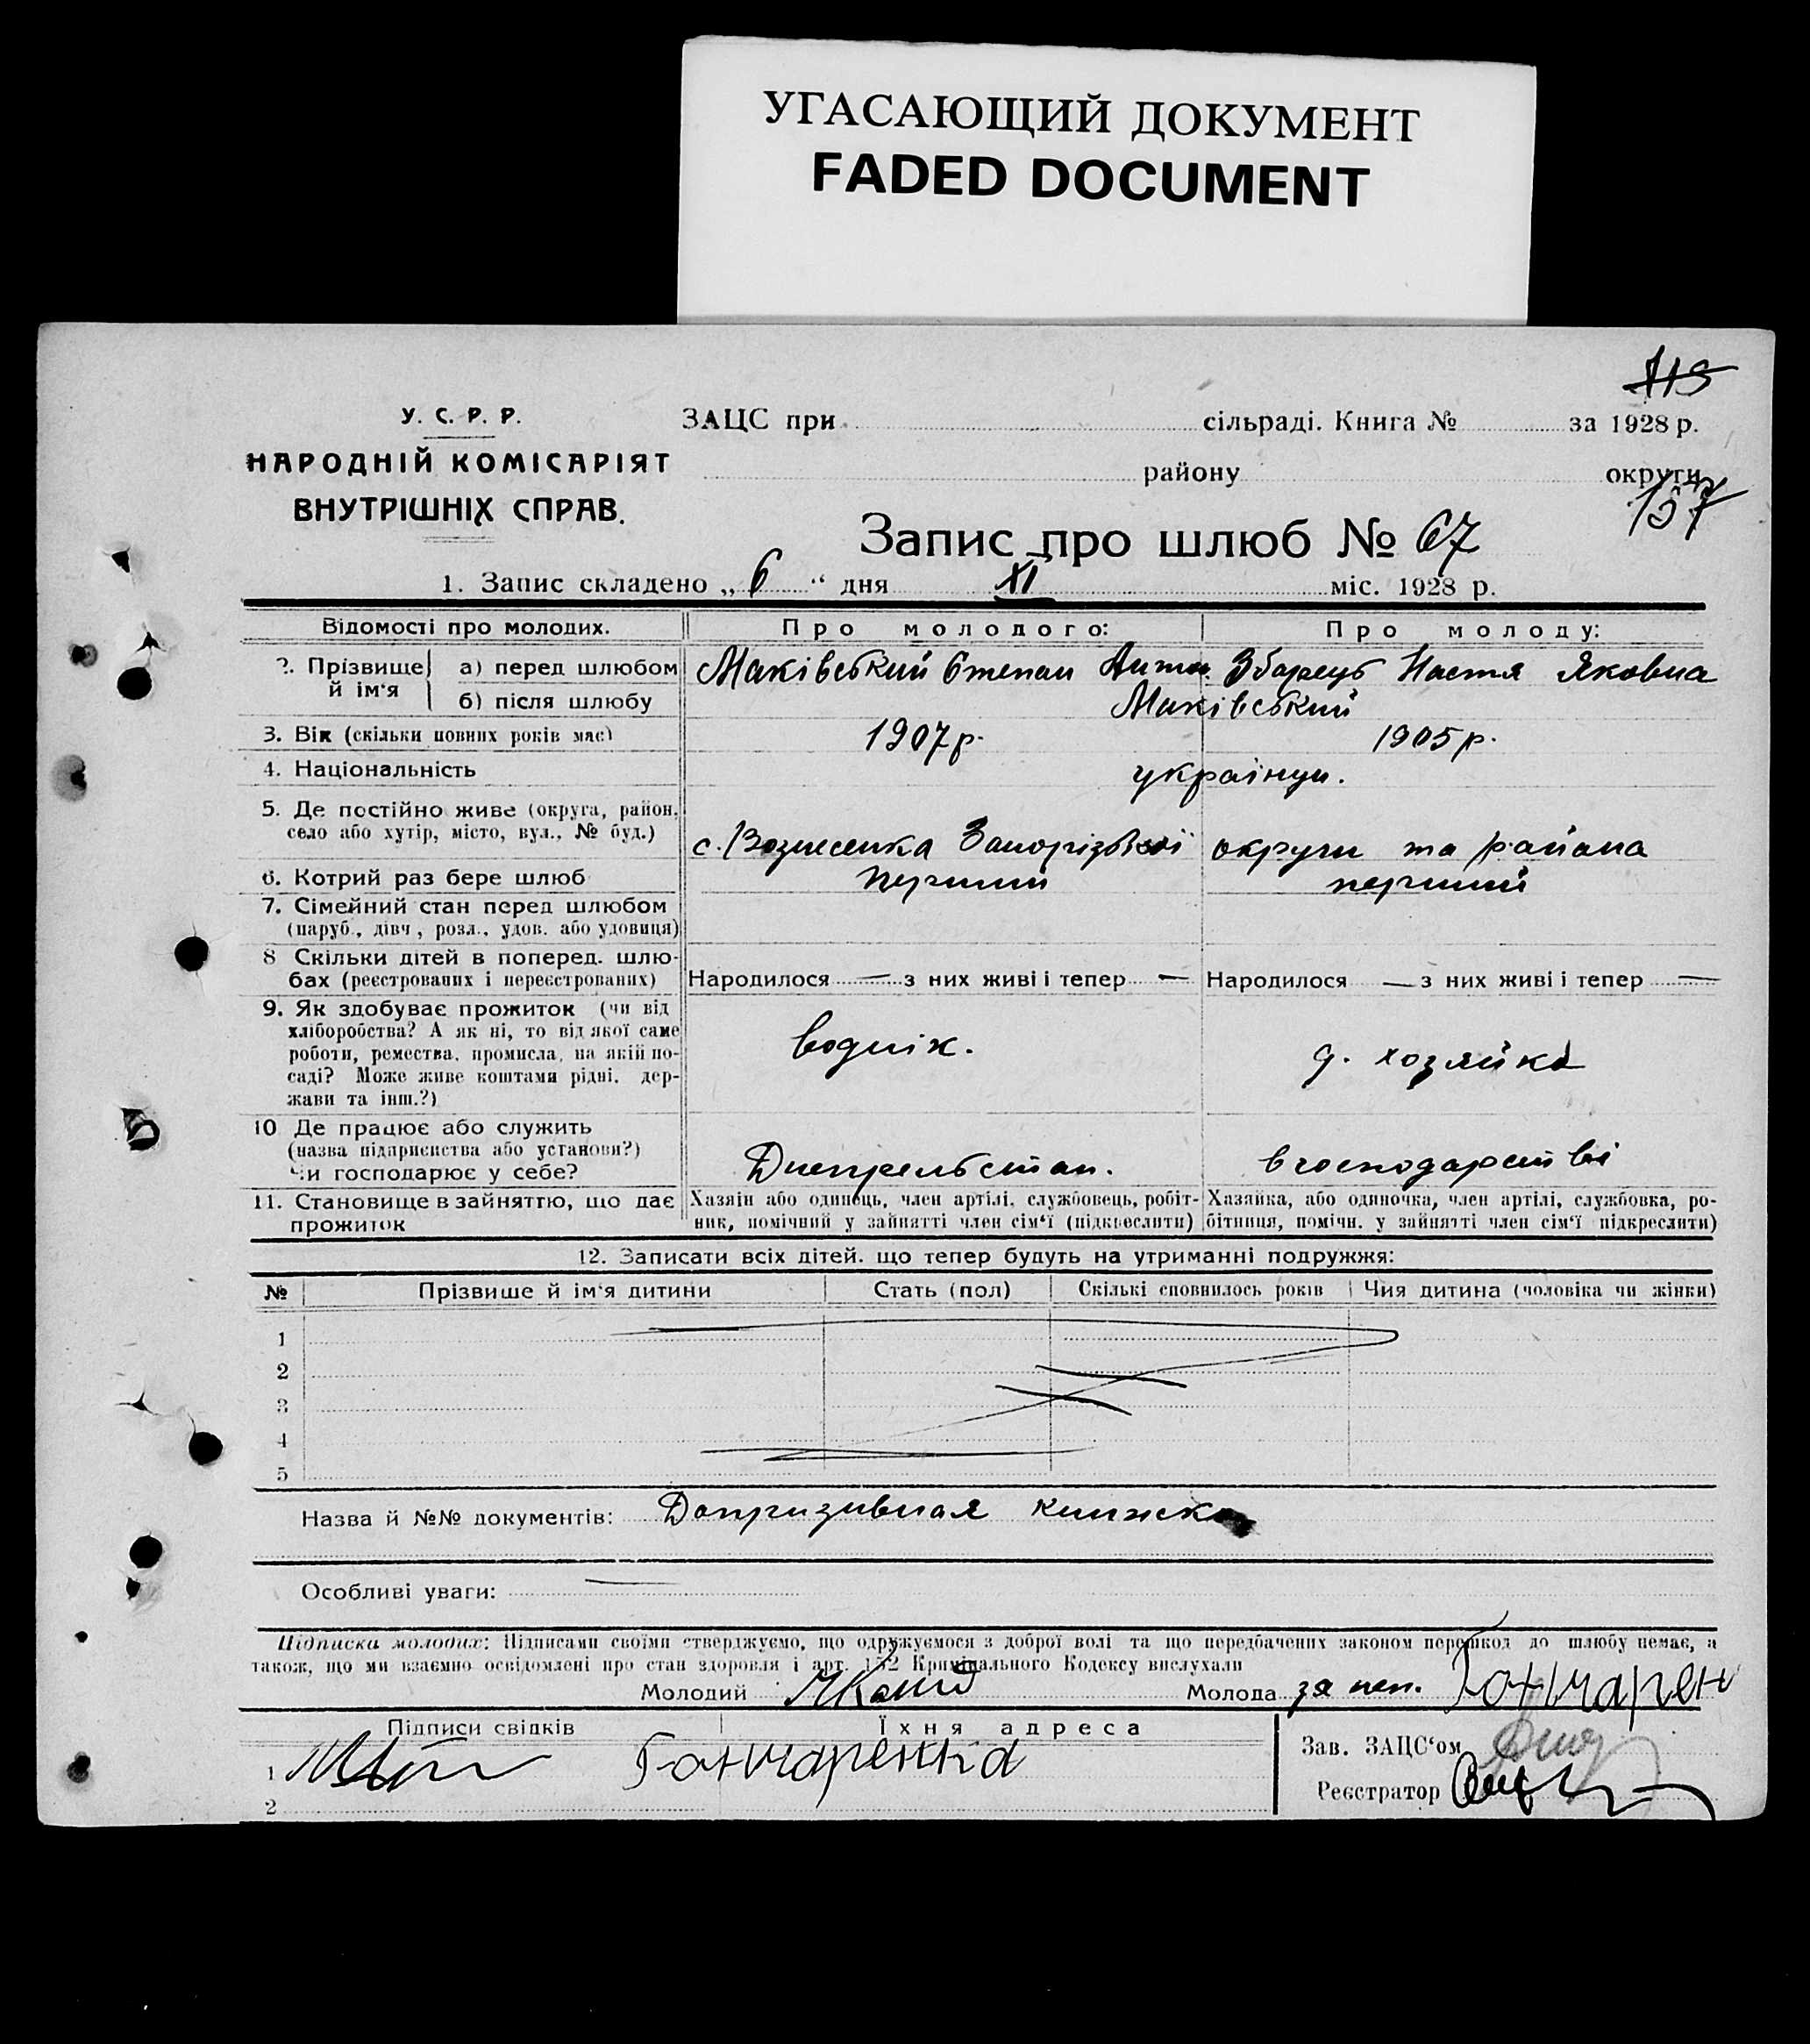 УГАСАЮЩИЙ ДОКУМЕНТ
FADED DOCUMENT
113
У. С. Р. Р.
НАРОДНІЙ КОМІСАРІЯТ
ВНУТРІШНІХ СПРАВ.
ЗАЦС при сільраді. Книга № за 1928 р.
району округи
157
Запис про шлюб № 67
1. Запис складено „ 6 “ дня XI міс. 1928 р.
Відомості про молодих. Про молодого: Про молоду:
2. Прізвище й ім'я а) перед шлюбом Маківський Степан Антон. Збарець Настя Яковна
б) після шлюбу Маківський
3. Вік (скільки повних років має) 1907 р. 1905 р.
4. Національність українци.
5. Де постійно живе (округа, район,
село або хутір, місто, вул., № буд.) с. Вознесенка Запорізької округи та района
6. Котрий раз бере шлюб перший перший
7. Сімейний стан перед шлюбом
(паруб., дівч., розл., удов. або удовиця)
8 Скільки дітей в поперед. шлю-
бах (реєстрованих і нереєстрованих) Народилося — з них живі і тепер — Народилося — з них живі і тепер —
9. Як здобуває прожиток (чи від
хліборобства? А як ні, то від якої саме
роботи, ремества, промисла, на якій по-
саді? Може живе коштами рідні, дер-
жави та інш.?)
водник. д. хозяйка
10 Де працює або служить
(назва підприємства або установи?)
Чи господарює у себе? Днепрельстан. в господарстві
11. Становище в зайняттю, що дає
прожиток
Хазяїн або одинець, член артілі, службовець, робіт-
ник, помічний у зайнятті член сім'ї (підкреслити)
Хазяйка, або одиночка, член артілі, службовка, ро-
бітниця, помічн. у зайнятті член сім'ї підкреслити)
12. Записати всіх дітей, що тепер будуть на утриманні подружжя:
№ Прізвише й ім'я дитини Стать (пол) Скількі сповнилось років Чия дитина (чоловіка чи жінки)
1
2
3
4
5
Назва й №№ документів: Допризивная книжка
Особливі уваги: —
Підписка молодих: Підписами своїми стверджуємо, що одружуємося з доброї волі та що передбачених законом перешкод до шлюбу немає, а
також, що ми взаємно освідомлені про стан здоровля і арт. 152 Кримінального Кодексу вислухали
Молодий Молода за неп. Гончарен
Підписи свідків Їхня адреса
1 Гончаренка
2
Зав. ЗАЦС'ом
Реєстратор